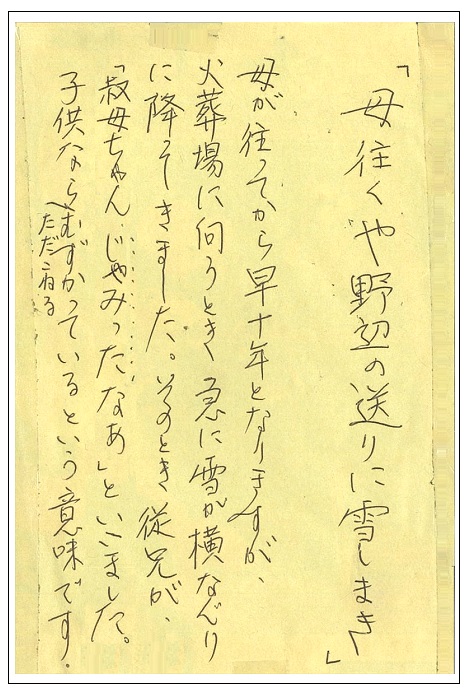 「母往くや野辺の送りに雪しまき」
母が往ってから早十年となりますが、
火葬場に向うとき、急に雪が横なぐり
に降ってきました。そのとき従兄が、
「叔母ちゃん、じゃみったなあ」といいました。
子供ならむずかっているという意味です。
〈ただこねる